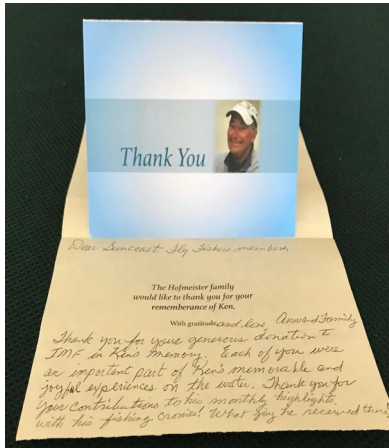 Thank You
Dear Suncoast Fly Fishers members,
The Hofmeister family
would like to thank you for your
rememberance of Ken.
With gratitude and love, Ann and Family
Thank you for your generous donation to
IMF in Ken's memory. Each of you were
an important part of Ken's memorable and
joyful experiences on the water. Thank you for
your contributions to his monthly highlights
with his fishing cronies! What joy he received there!